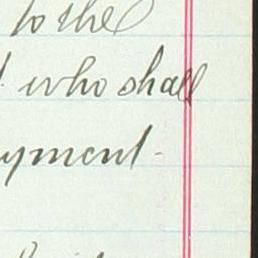 to the
who shall
yment-